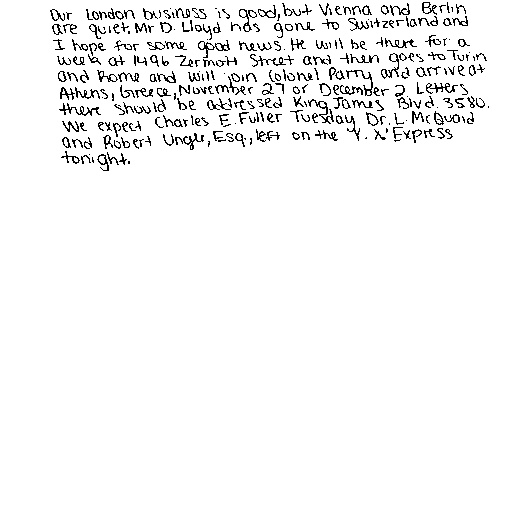 Our London business is good, but Vienna and Berlin
are quiet. Mr D. Lloyd has gone to Switzerland and
I hope for some good news. He will be there for a
week at 1496 Zermott Street and then goes to Turin
and Rome and will join Colonel Parry and arrive at
Athens, Greece, November 27 or December 2. Letters
there should be addressed King James Blvd. 3580.
We expect Charles E. Fuller Tuesday. Dr. L. McQuaid
and Robert Unger, Esq., left on the "Y. X." Express
tonight.